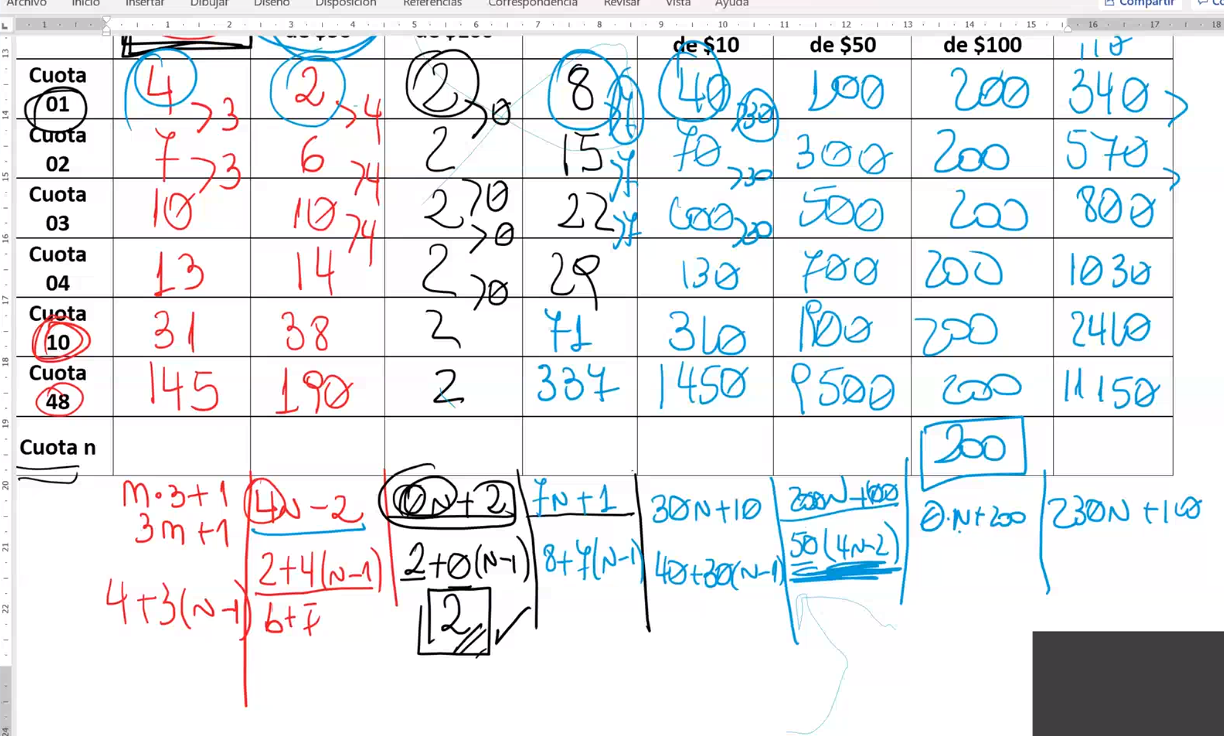 Archivo Inicio Insertar Dibujar Diseño Disposición Referencias Correspondencia Revisar Vista Ayuda Compartir
1 2 3 4 5 6 7 8 9 10 11 12 13 14 15 16 17 18
de $10 de $50 de $100 110
Cuota 01 4 >3 2 >4 2 >0 8 40 >30 100 200 340 >
Cuota 02 7 >3 6 >4 2 15 >7 70 >30 300 200 570 >
Cuota 03 10 10 >4 2 >0 >0 22 >7 100 >30 500 200 800
Cuota 04 13 14 2 >0 29 130 700 200 1030
Cuota 10 31 38 2 71 310 1900 200 2410
Cuota 48 145 190 2 337 1450 9500 200 11150
Cuota n 200
m·3+1 4N-2 0N+2 7N+1 30N+10 0·N+200 230N+110
3m+1
4+3(N-1) 2+4(N-1) 2+0(N-1) 8+7(N-1) 40+30(N-1) 50(4N-2)
2
13
14
15
16
17
18
19
20
21
22
24